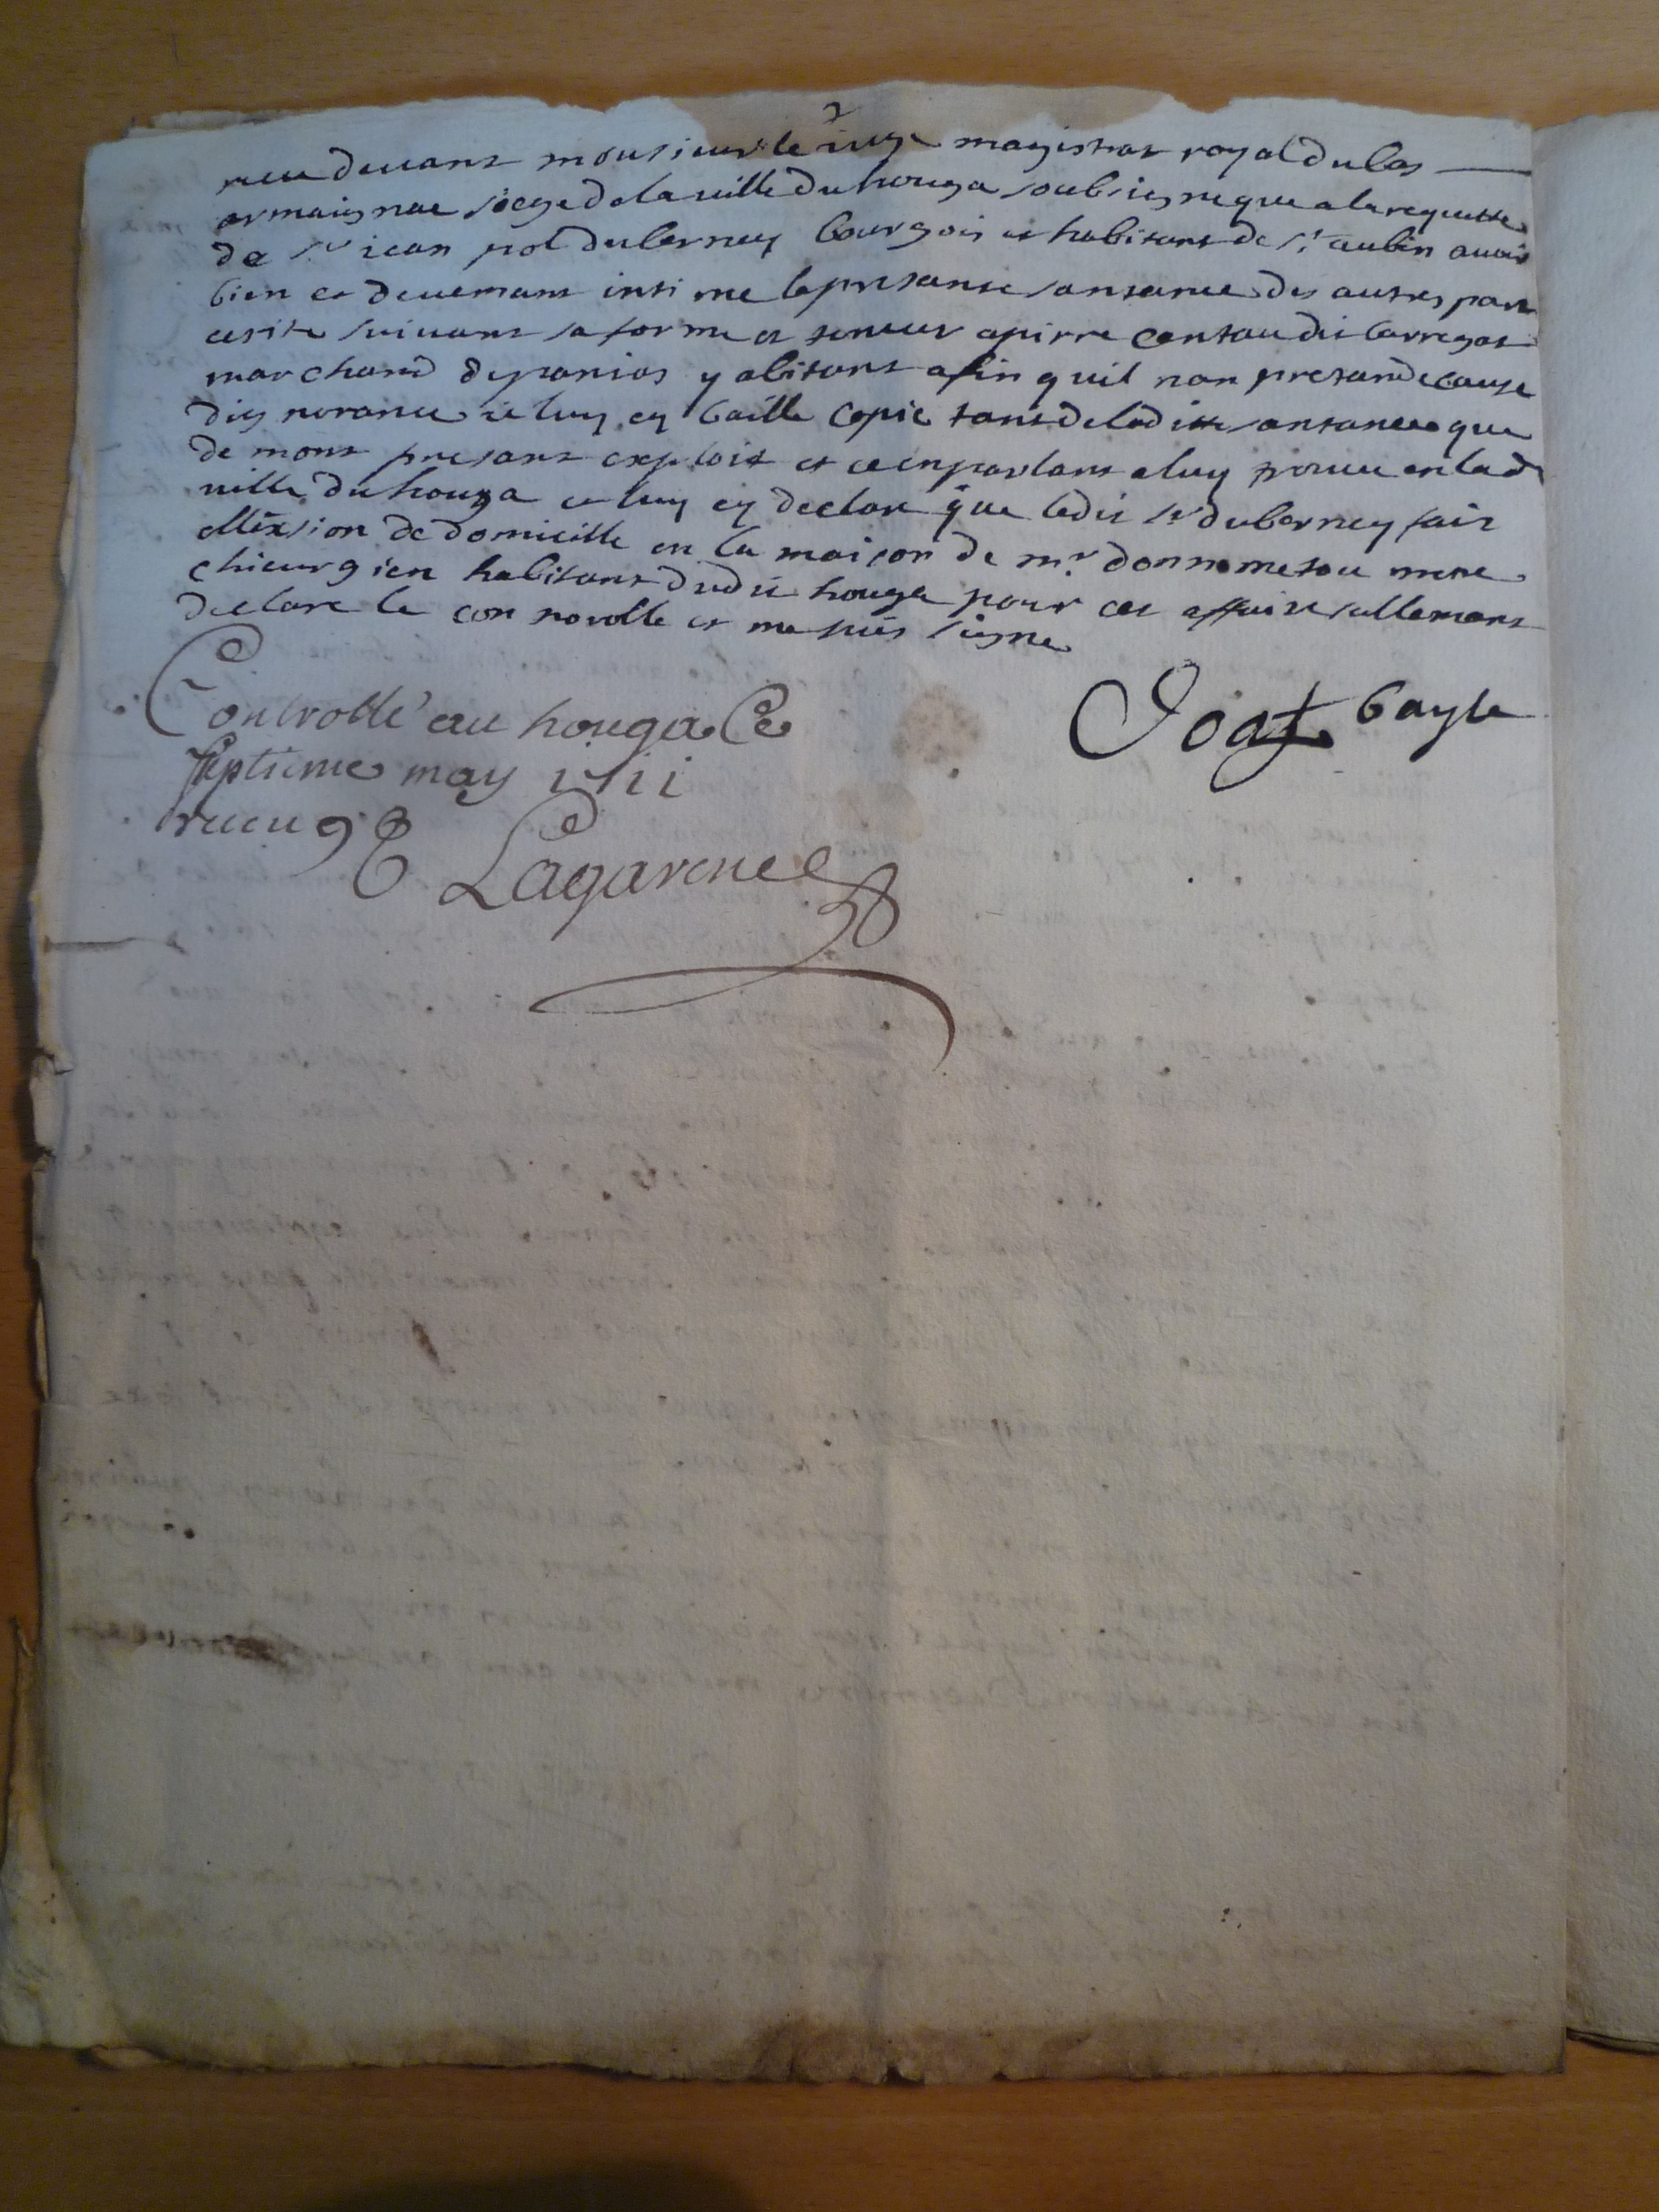 receu devant monsieur le iuge magistrat royal du bas
armaignac siege de la ville du houga soubsigne que a la requette
de sr iean pol duberney bourgois et habitant de st aubin avoir
bien et deuemant intime la presante santance des autres part
escrite suivant sa forme et teneur a pierre dit barregat
marchand de panias y abitant afin quil nan pretande cause
dignorance ie luy ey baille copie tant de laditte santance que
de mont presant exploit et ce en parlant a luy trouve en lad
ville du houga et luy ey declare que ledit sr duberney fait
ellexsion de domicille en la maison de mr me
chieurgien habitant dudit houga pour cet affaire sullemant
declare le con norolle et me suis signe
Joat bayle
Controllé au houga Ce
septieme may 1711
receu 9 s
Lagarene